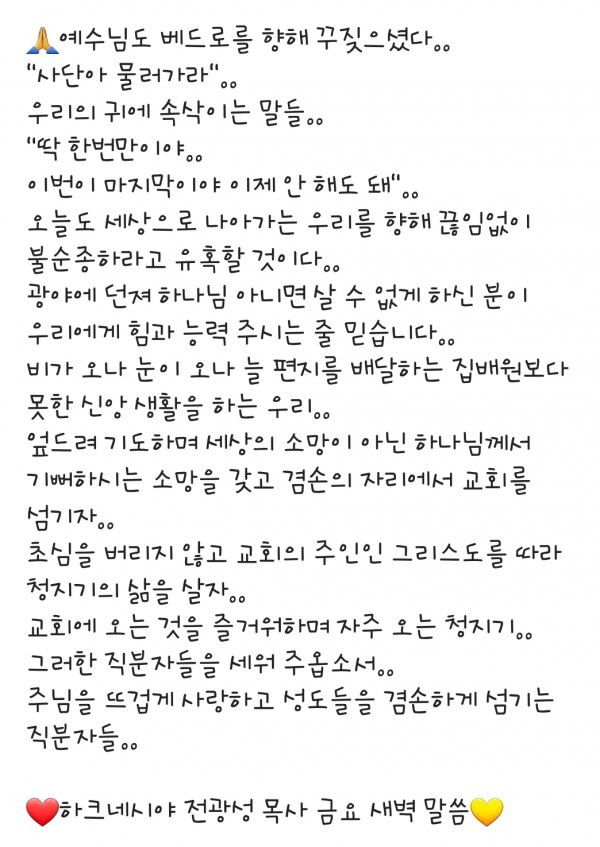 🙏예수님도 베드로를 향해 꾸짖으셨다。。
"사단아 물러가라"。。
우리의 귀에 속삭이는 말들。。
"딱 한번만이야。。
이번이 마지막이야 이제 안 해도 돼"。。
오늘도 세상으로 나아가는 우리를 향해 끊임없이
불순종하라고 유혹할 것이다。。
광야에 던져 하나님 아니면 살 수 없게 하신 분이
우리에게 힘과 능력 주시는 줄 믿습니다。。
비가 오나 눈이 오나 늘 편지를 배달하는 집배원보다
못한 신앙 생활을 하는 우리。。
엎드려 기도하며 세상의 소망이 아닌 하나님께서
기뻐하시는 소망을 갖고 겸손의 자리에서 교회를
섬기자。。
초심을 버리지 않고 교회의 주인인 그리스도를 따라
청지기의 삶을 살자。。
교회에 오는 것을 즐거워하며 자주 오는 청지기。。
그러한 직분자들을 세워 주옵소서。。
주님을 뜨겁게 사랑하고 성도들을 겸손하게 섬기는
직분자들。。
❤️하크네시야 전광성 목사 금요 새벽 말씀💛